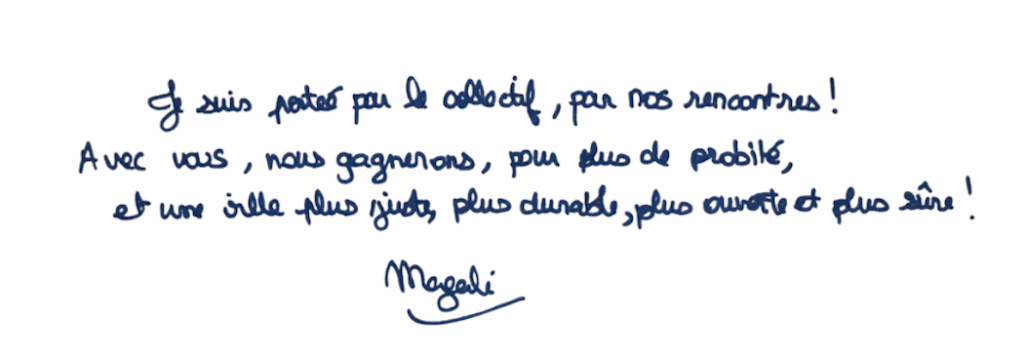 Je suis portée par le collectif, par nos rencontres !
Avec vous, nous gagnerons, pour plus de probité,
et une ville plus juste, plus durable, plus ouverte et plus sûre !
Magali